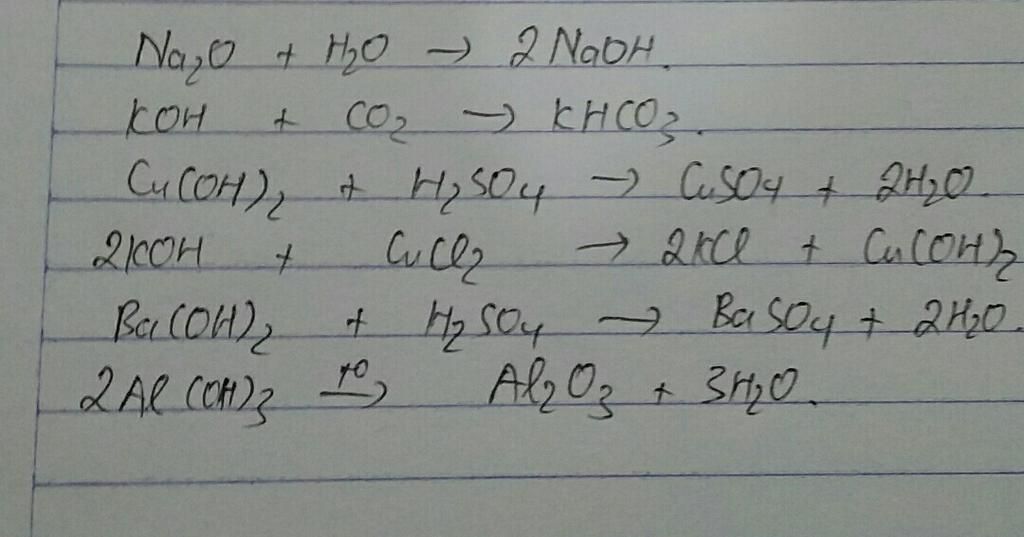 Na₂O + H₂O → 2NaOH.
KOH + CO₂ → KHCO₃.
Cu(OH)₂ + H₂SO₄ → CuSO₄ + 2H₂O.
2KOH + CuCl₂ → 2KCl + Cu(OH)₂
Ba(OH)₂ + H₂SO₄ → BaSO₄ + 2H₂O.
2Al(OH)₃ —t⁰→ Al₂O₃ + 3H₂O.